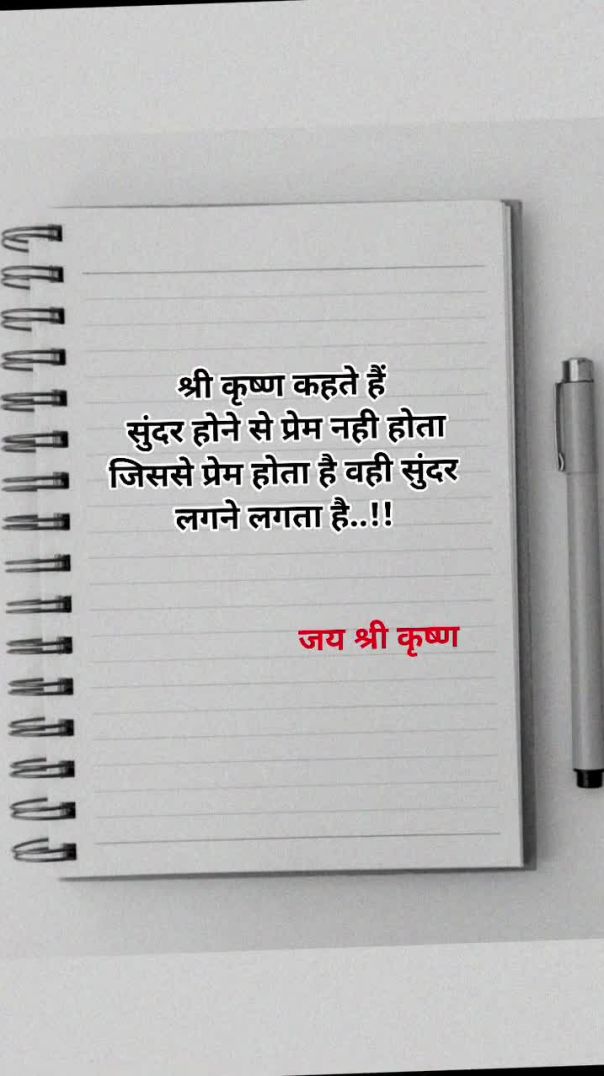 श्री कृष्ण कहते हैं
सुंदर होने से प्रेम नही होता
जिससे प्रेम होता है वही सुंदर
लगने लगता है..!!
जय श्री कृष्ण